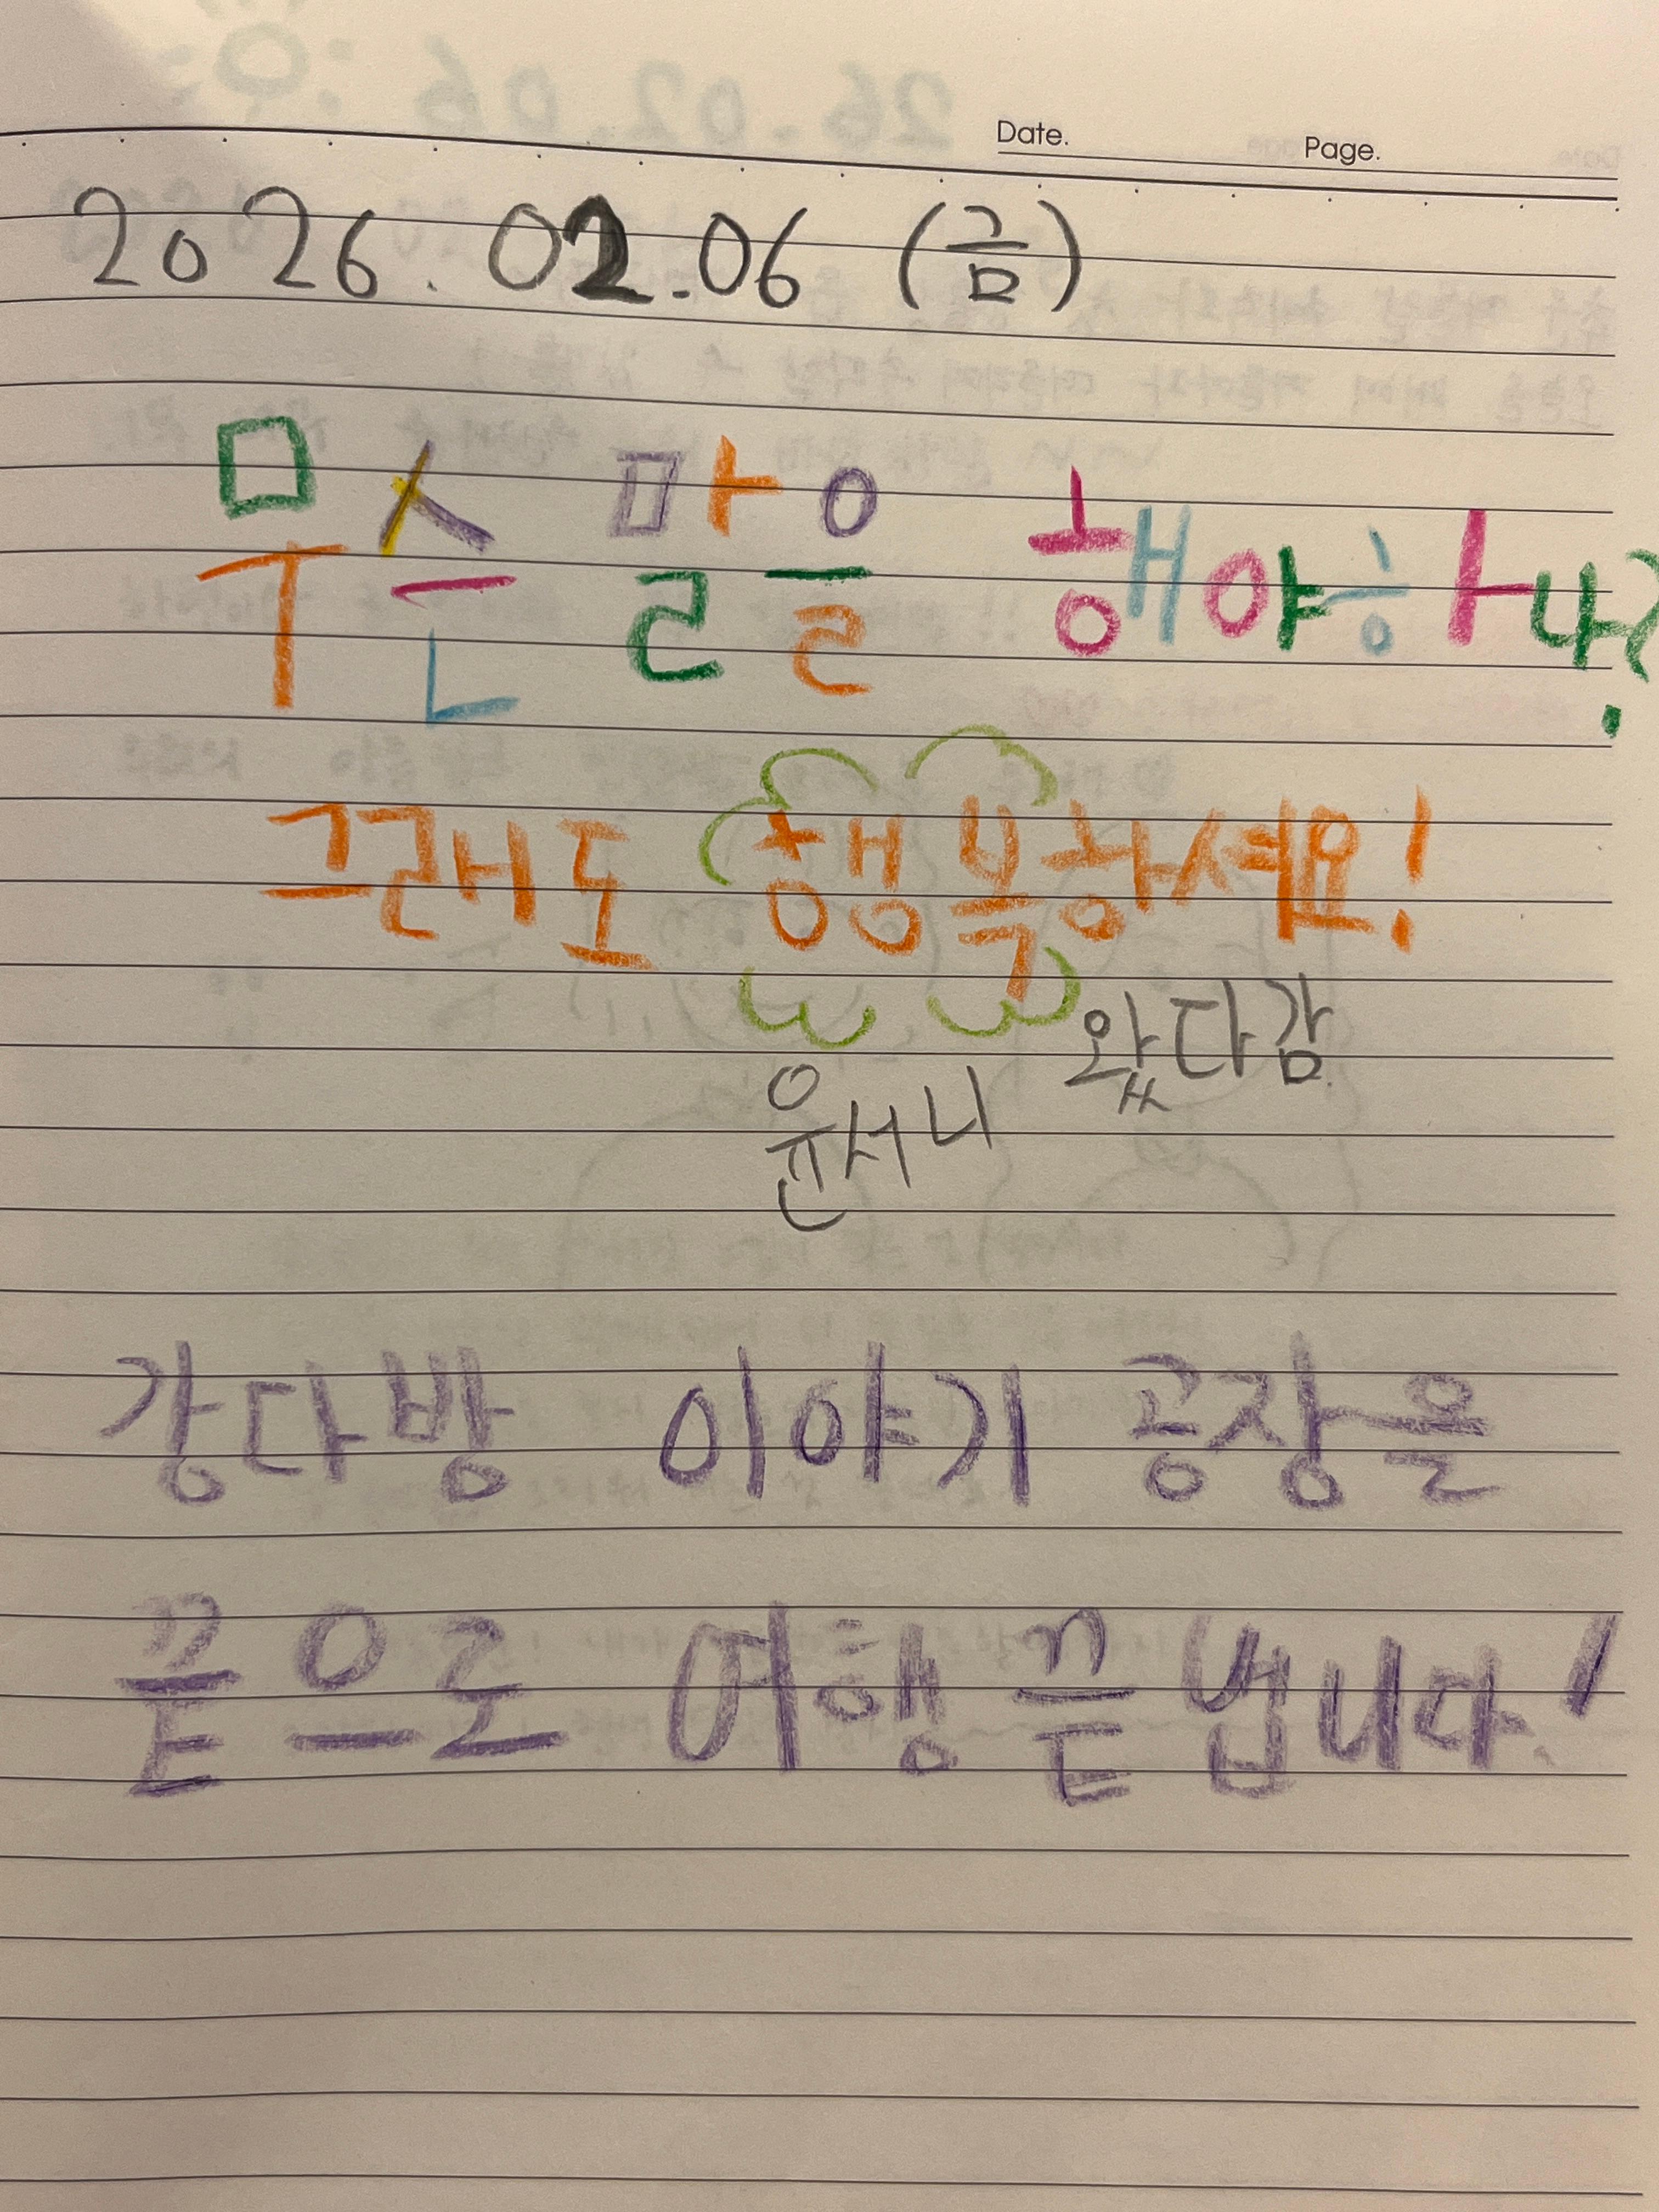 Date. Page.
2026.02.06 (금)
무슨 말을 해야하나?
그래도 행복하세요!
왔다감
윤서니
강다방 이야기 공장을
끝으로 여행 끝냅니다!